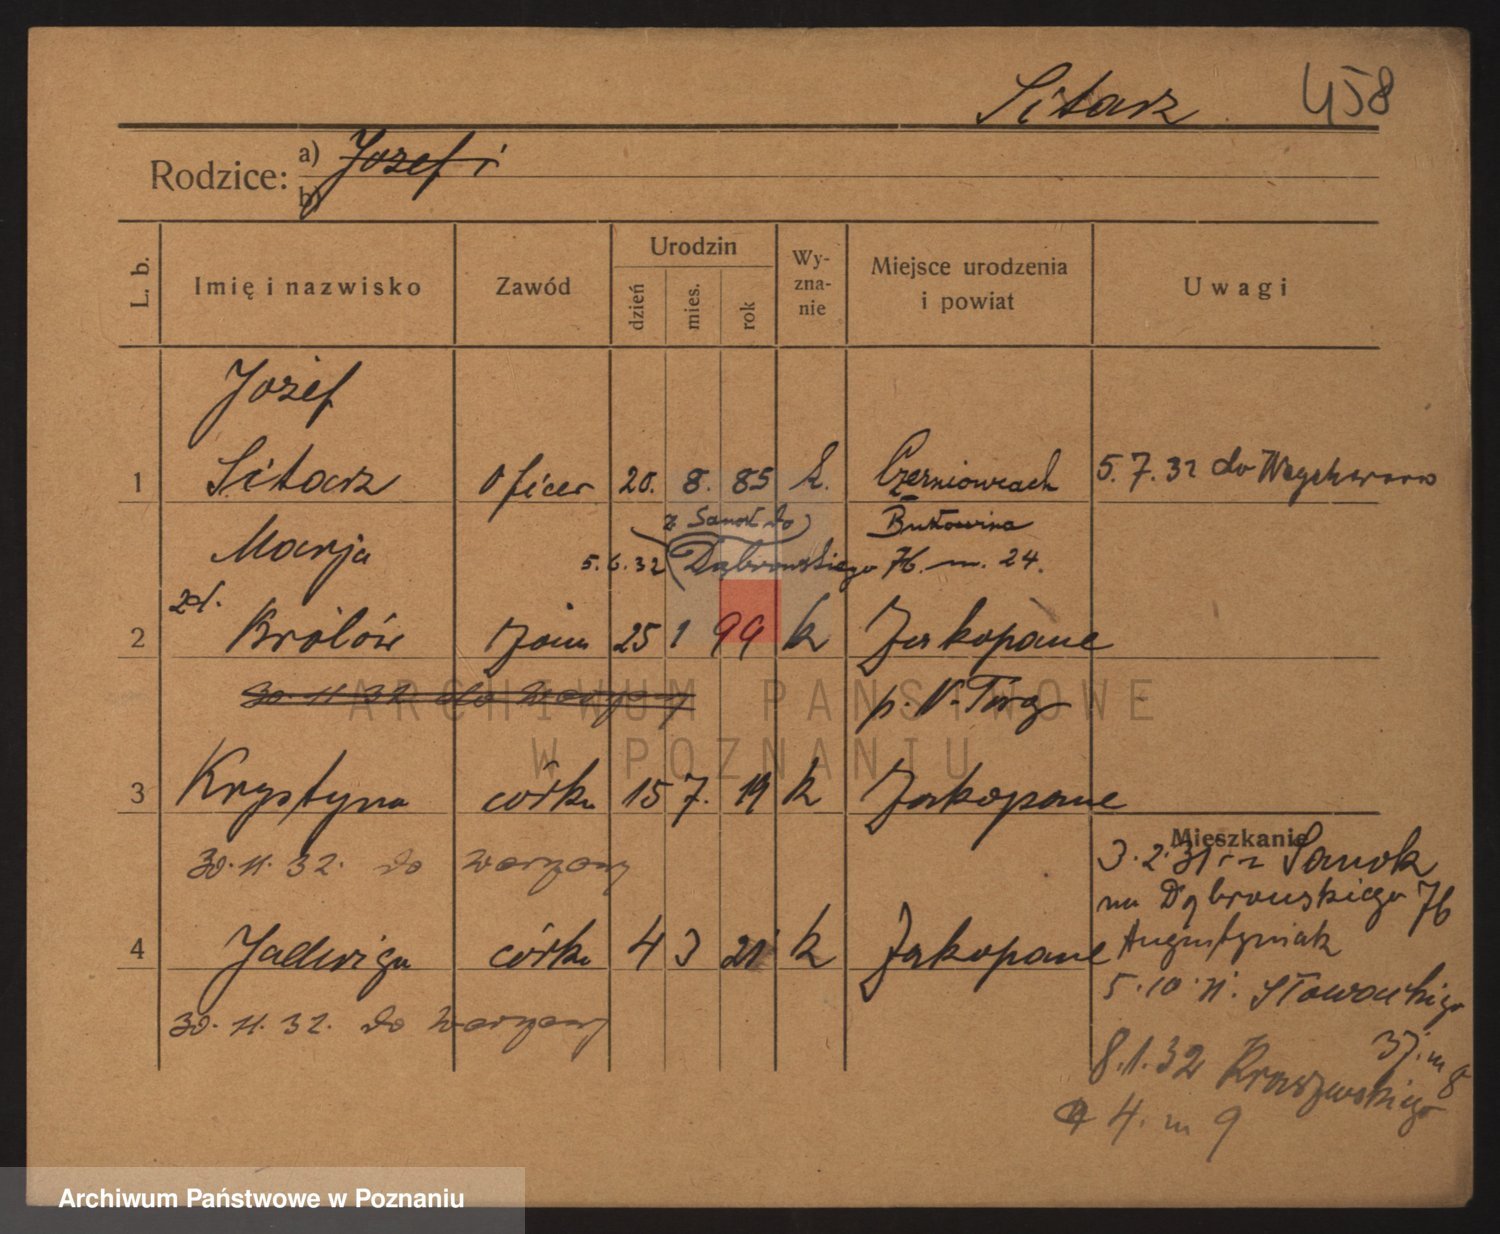 Sitarz 458
Rodzice: a) Jozef i
b)
L. b. Imię i nazwisko Zawód Urodzin dzień mies. rok Wyznanie Miejsce urodzenia i powiat Uwagi
Jozef
1 Sitarz oficer 20. 8. 85 k. Czerniowcach 5.7.32 do
z Sanok do Bukowina
Marja 5.6.32 Dąbrowskiego 76 m. 24.
zd.
2 Królów żona 25 1 99 k Zakopane
30.11.32 do Warszawy p. N. Targ
ARCHIWUM PAŃSTWOWE
W POZNANIU
3 Krystyna córka 15 7. 19 k Zakopane
Mieszkanie
30.11.32. do Warszawy 3.2.31 z Sanok
na Dąbrowskiego 76
4 Jadwiga córka 4 3 21 k Zakopane Augustyniak
5.10.31. Słowackiego
30.11.32. do Warszawy 37. m 8
8.1.32 Kraszewskiego
4. m 9
Archiwum Państwowe w Poznaniu